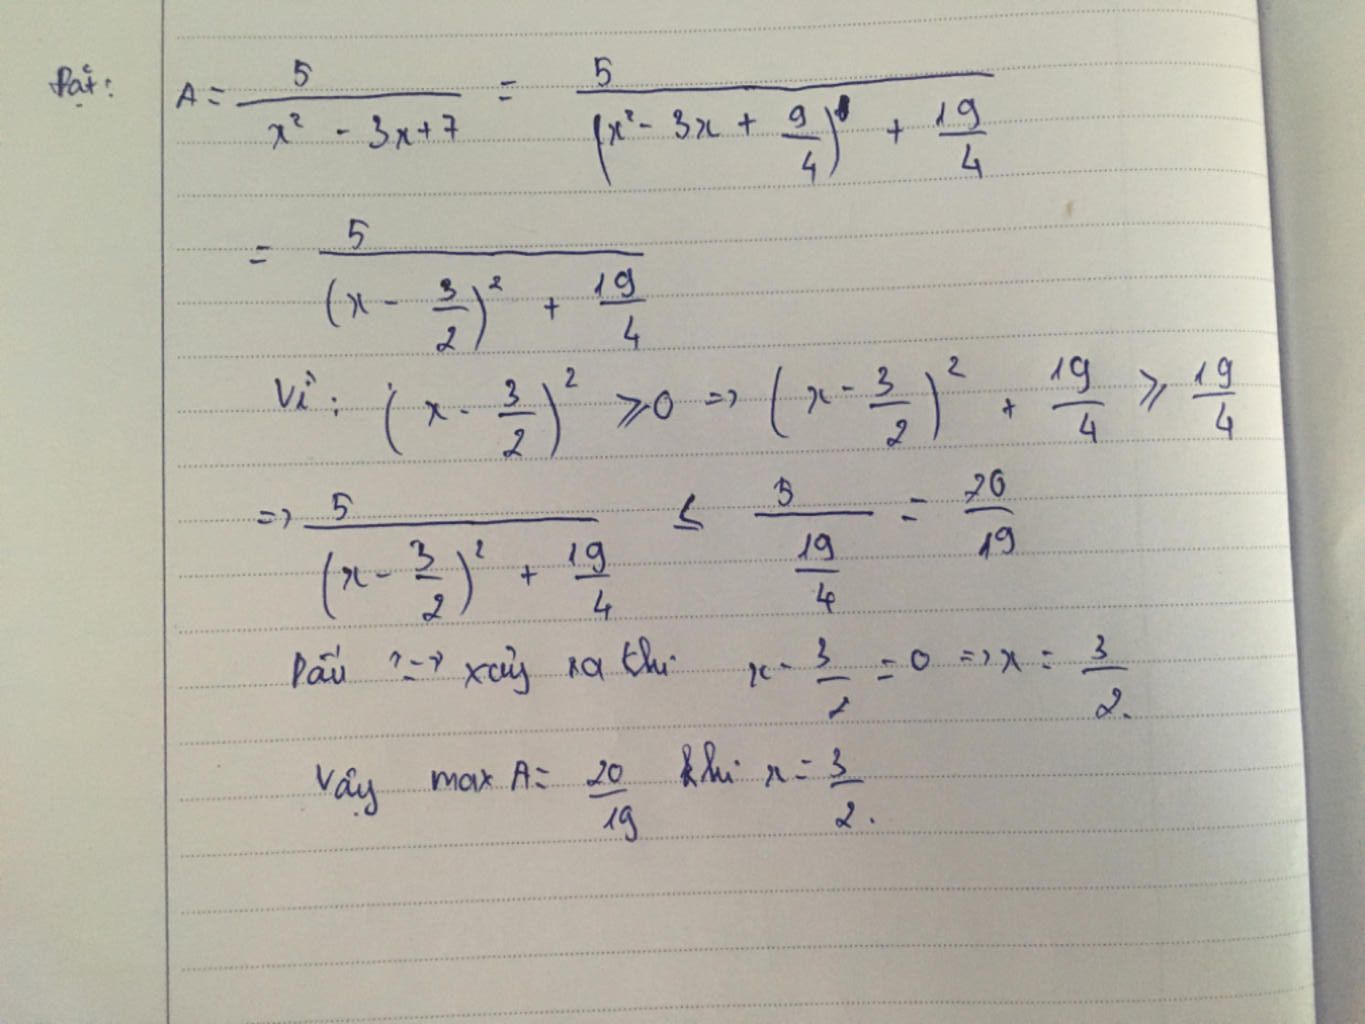 Đặt: A = 5/(x² - 3x + 7) = 5/((x² - 3x + 9/4) + 19/4)
= 5/((x - 3/2)² + 19/4)
Vì: (x - 3/2)² ⩾ 0 => (x - 3/2)² + 19/4 ⩾ 19/4
=> 5/((x - 3/2)² + 19/4) ≤ 5/(19/4) = 20/19
Dấu "=" xảy ra khi x - 3/2 = 0 => x = 3/2.
Vậy max A = 20/19 khi x = 3/2.